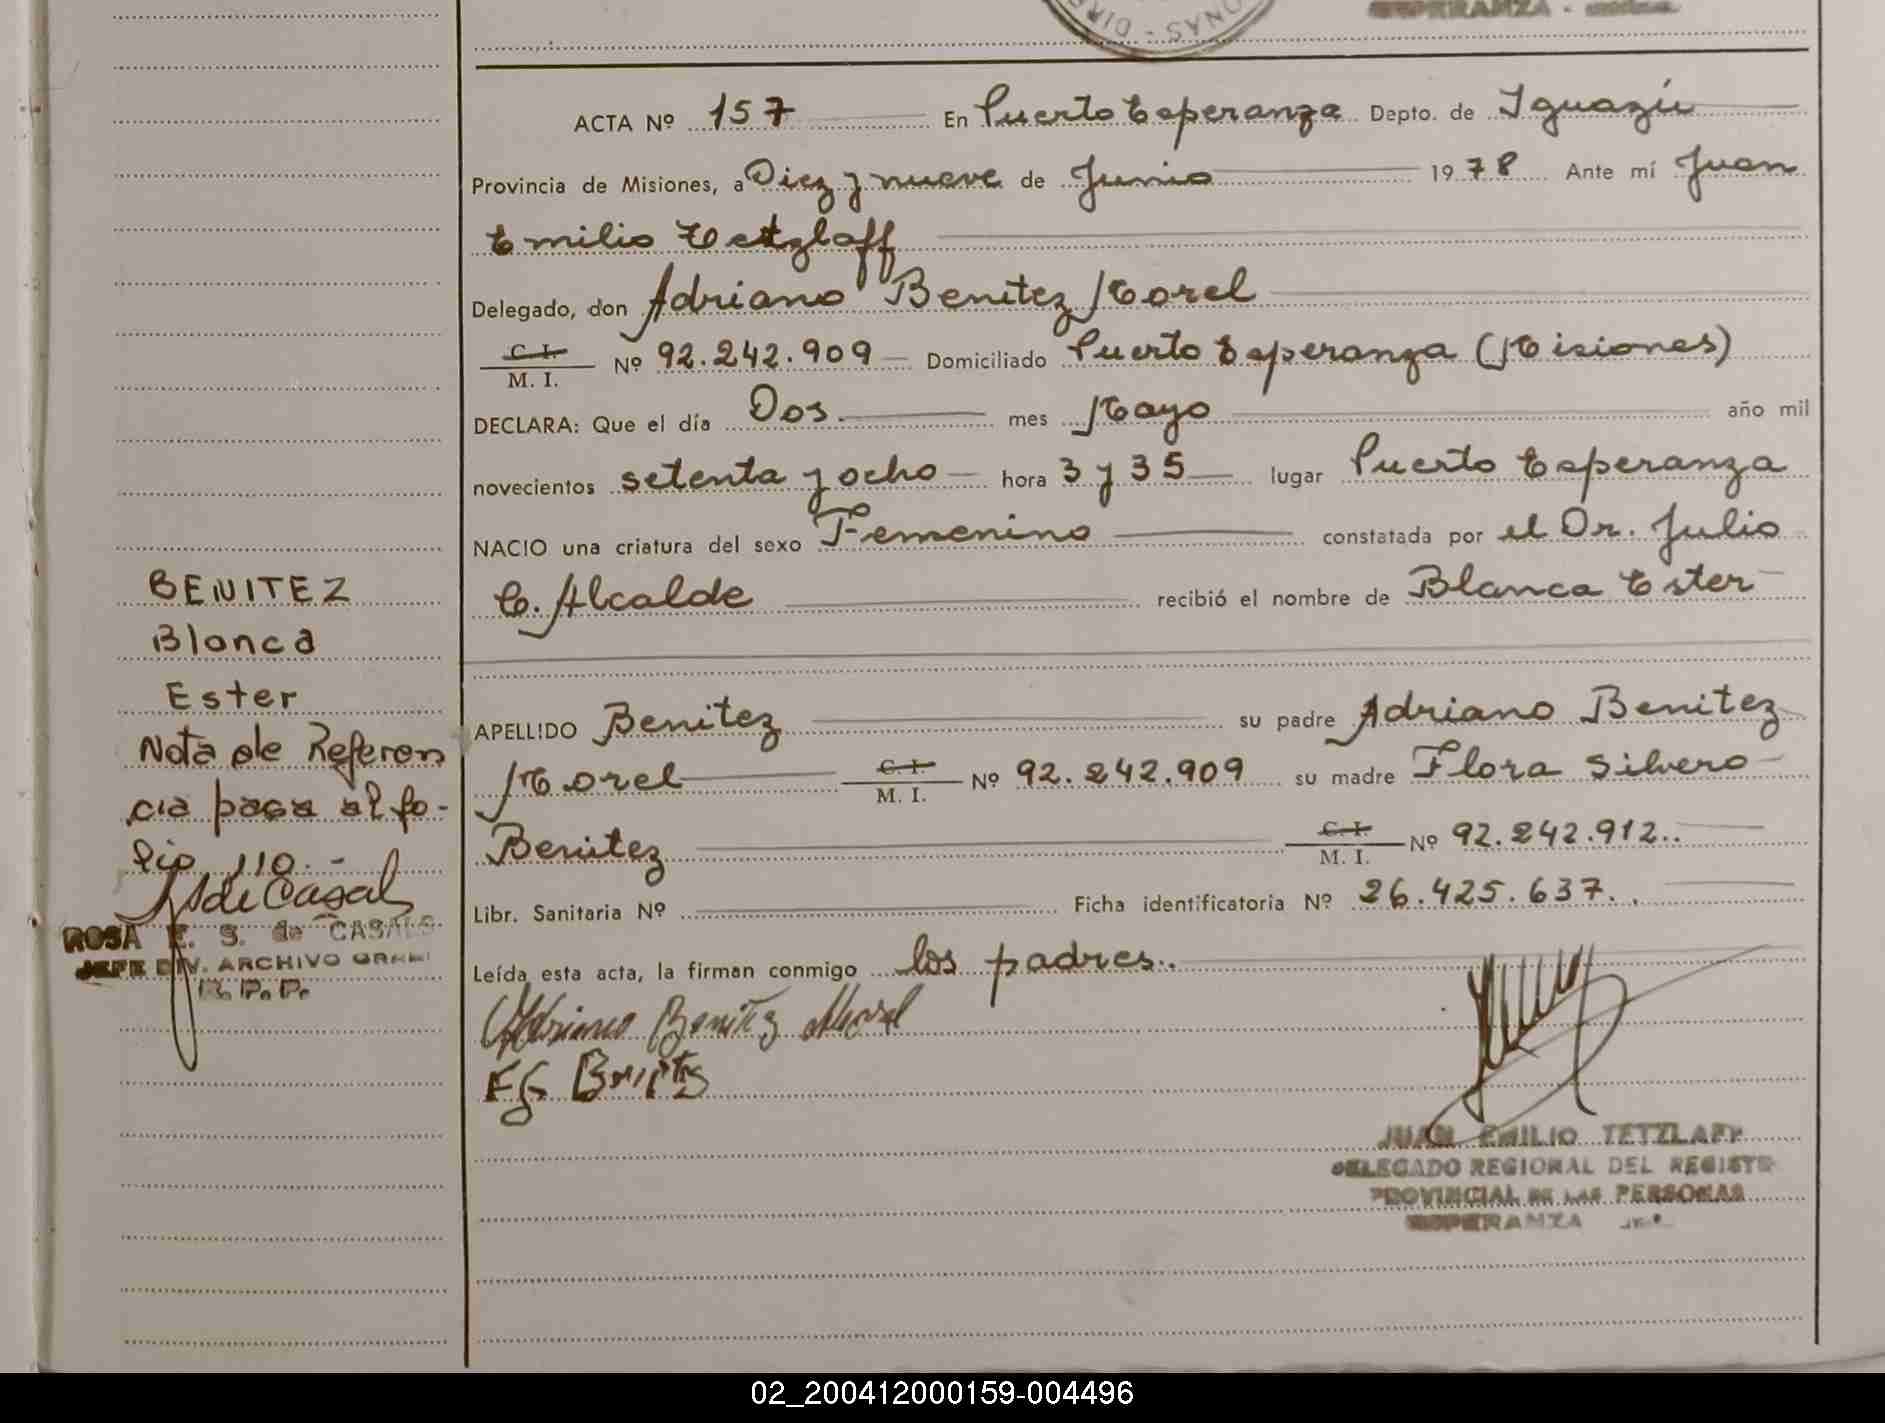 ONAS - DIRE
ESPERANZA -
ACTA Nº 157 En Puerto Esperanza Depto. de Iguazú
Provincia de Misiones, a Diez y nueve de Junio 1978 Ante mí Juan
Emilio Tetzlaff
Delegado, don Adriano Benitez Morel
C. I. / M. I. Nº 92.242.909 Domiciliado Puerto Esperanza (Misiones)
DECLARA: Que el día Dos mes Mayo año mil
novecientos setenta y ocho hora 3 y 35 lugar Puerto Esperanza
NACIO una criatura del sexo Femenino constatada por el Dr. Julio
C. Alcalde recibió el nombre de Blanca Ester
APELLIDO Benitez su padre Adriano Benitez
Morel C. I. / M. I. Nº 92.242.909 su madre Flora Silvero
Benitez C. I. / M. I. Nº 92.242.912..
Libr. Sanitaria Nº Ficha identificatoria Nº 26.425.637.
Leída esta acta, la firman conmigo los padres.
Adriano Benitez Morel
F G Benitez
JUAN EMILIO TETZLAFF
DELEGADO REGIONAL DEL REGISTR
PROVINCIAL DE LAS PERSONAS
ESPERANZA
BENITEZ
Blanca
Ester
Nota de Referen
cia pasa al fo-
lio 110.-
de Casal
ROSA E. S. de CASALS
JEFE DIV. ARCHIVO GRAL
R. P. P.
02_200412000159-004496